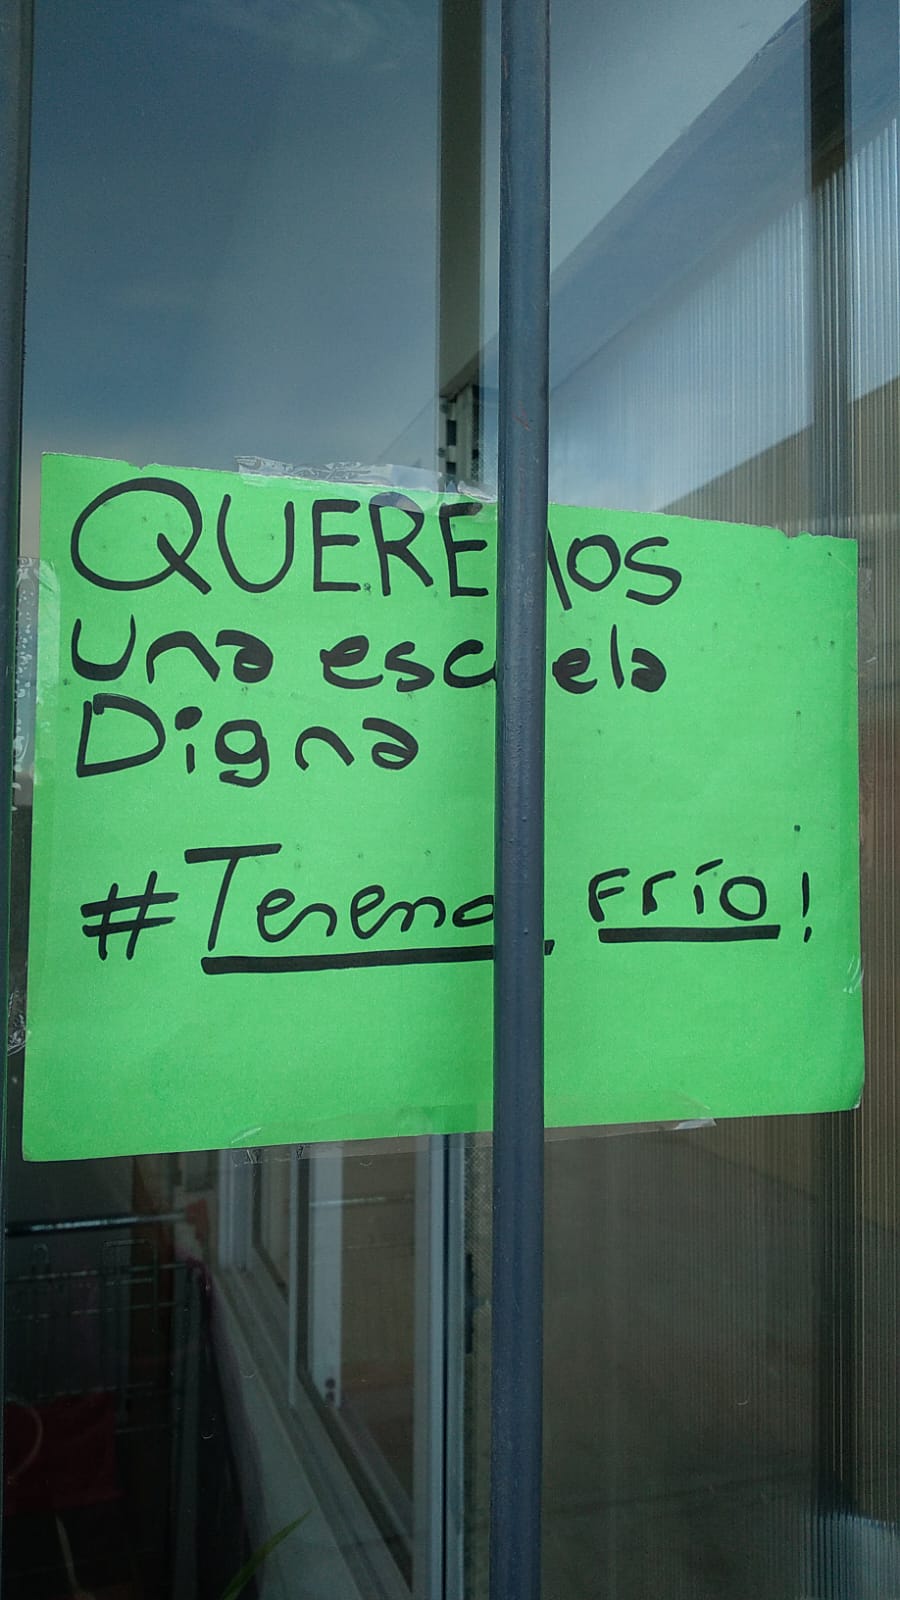 QUEREMOS
una escuela
Digna
#Tenemos frío!